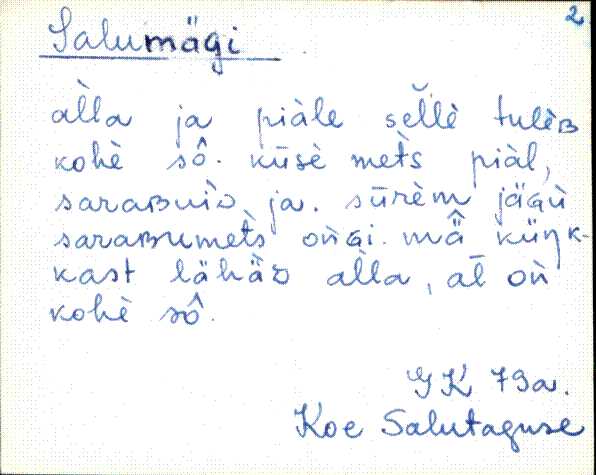 2
Salumägi
al̀la ja piàle sel̆lè tulèʙ
kohè sô. kūsè met̀s piàl,
saraʙuìᴅ ja. sūrèm jäɢù
saraʙumet̀s oǹɢi. mä̂ küŋk-
kast lähä̀ᴅ al̀la, al̄ oǹ
kohè sô.
GK 79a.
Koe Salutaguse